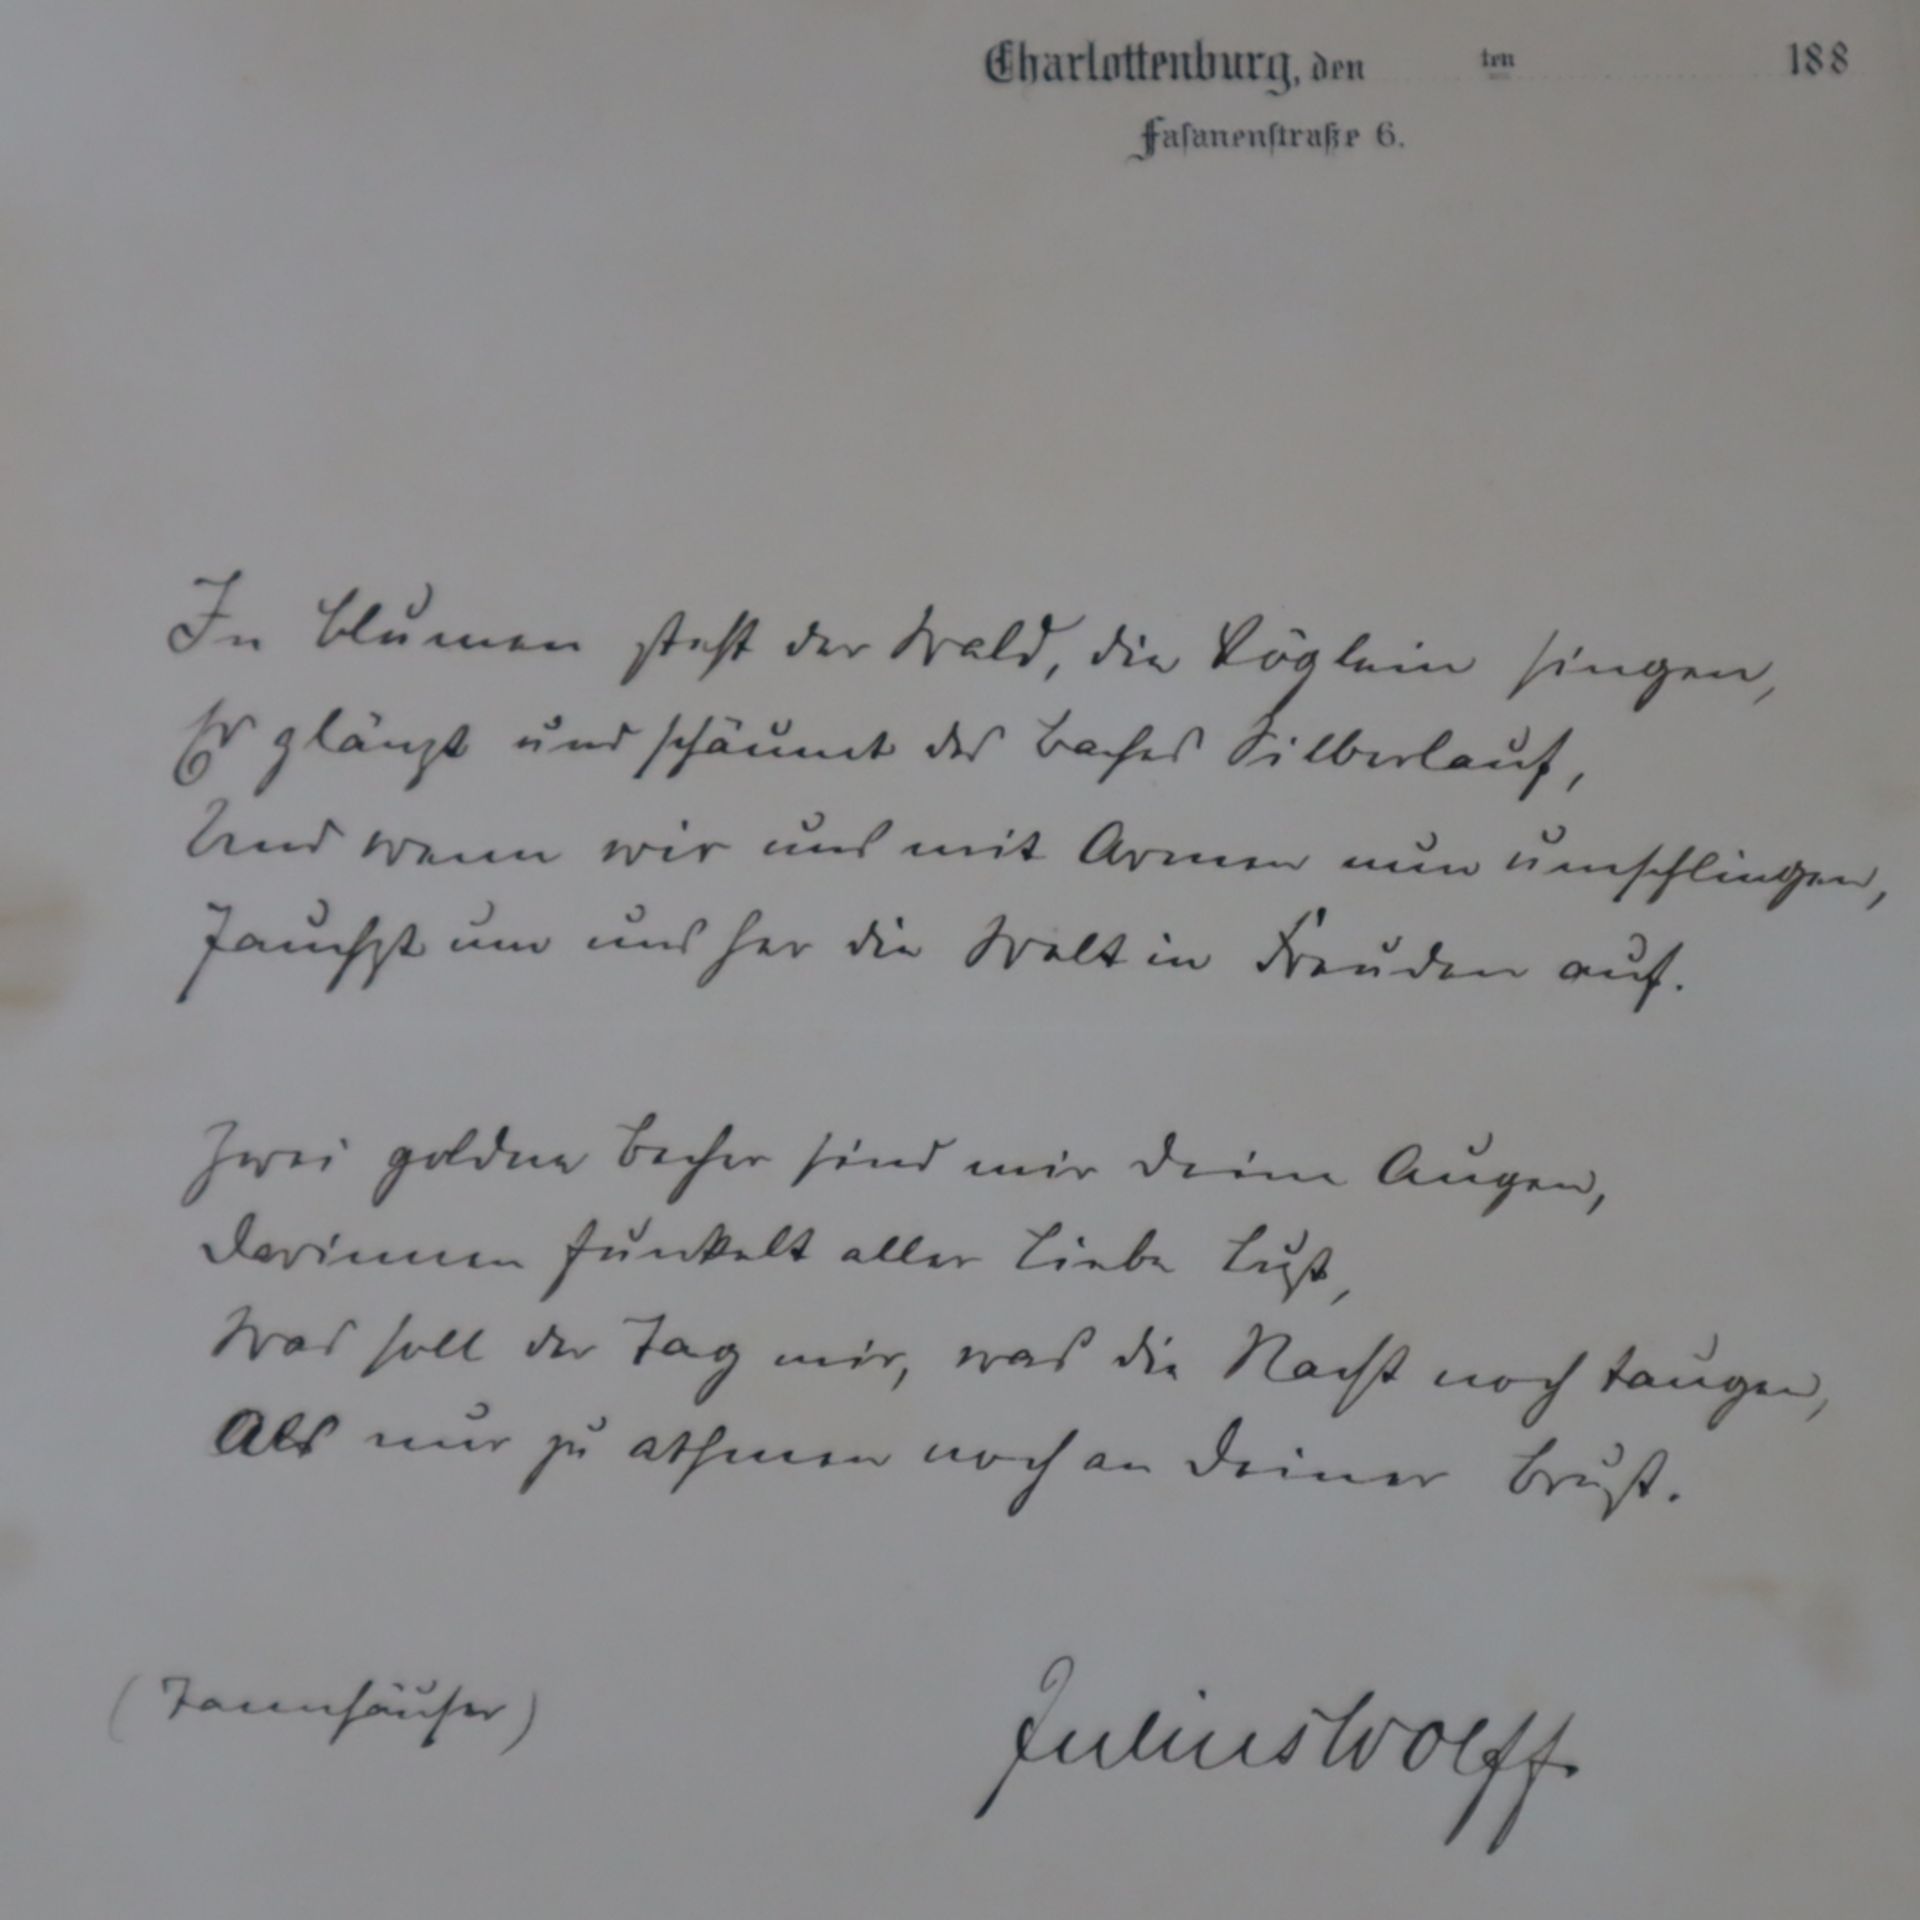 Charlottenburg, den ten 188
Fasanenstraße 6.
In Blumen steht der Wald, die Vöglein singen,
Es glänzt und schäumt des Baches Silberlauf,
Und wenn wir uns mit Armen nun umschlingen,
Jauchzt um uns her die Welt in Freuden auf.
Zwei goldne Becher sind mir Deine Augen,
Darinnen funkelt aller Liebe Lust,
Was soll der Tag mir, was die Nacht noch taugen,
Als nur zu athmen noch an Deiner Brust.
(Tannhäuser)
Julius Wolff.